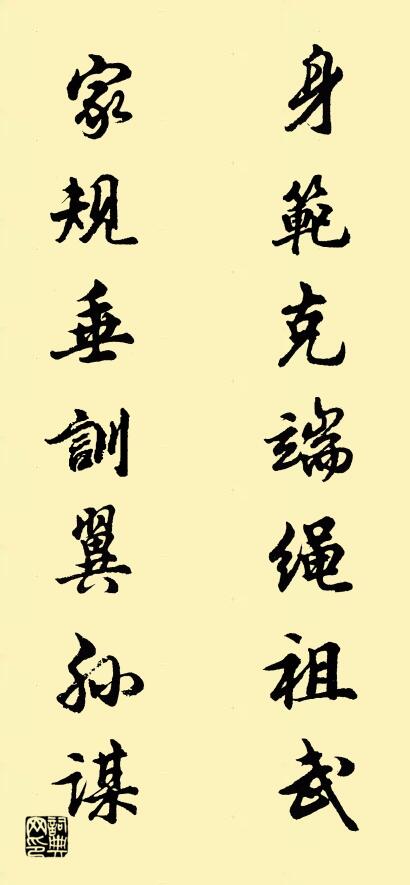 身範克端绳祖武
家規垂訓翼孙谋
詞典网印